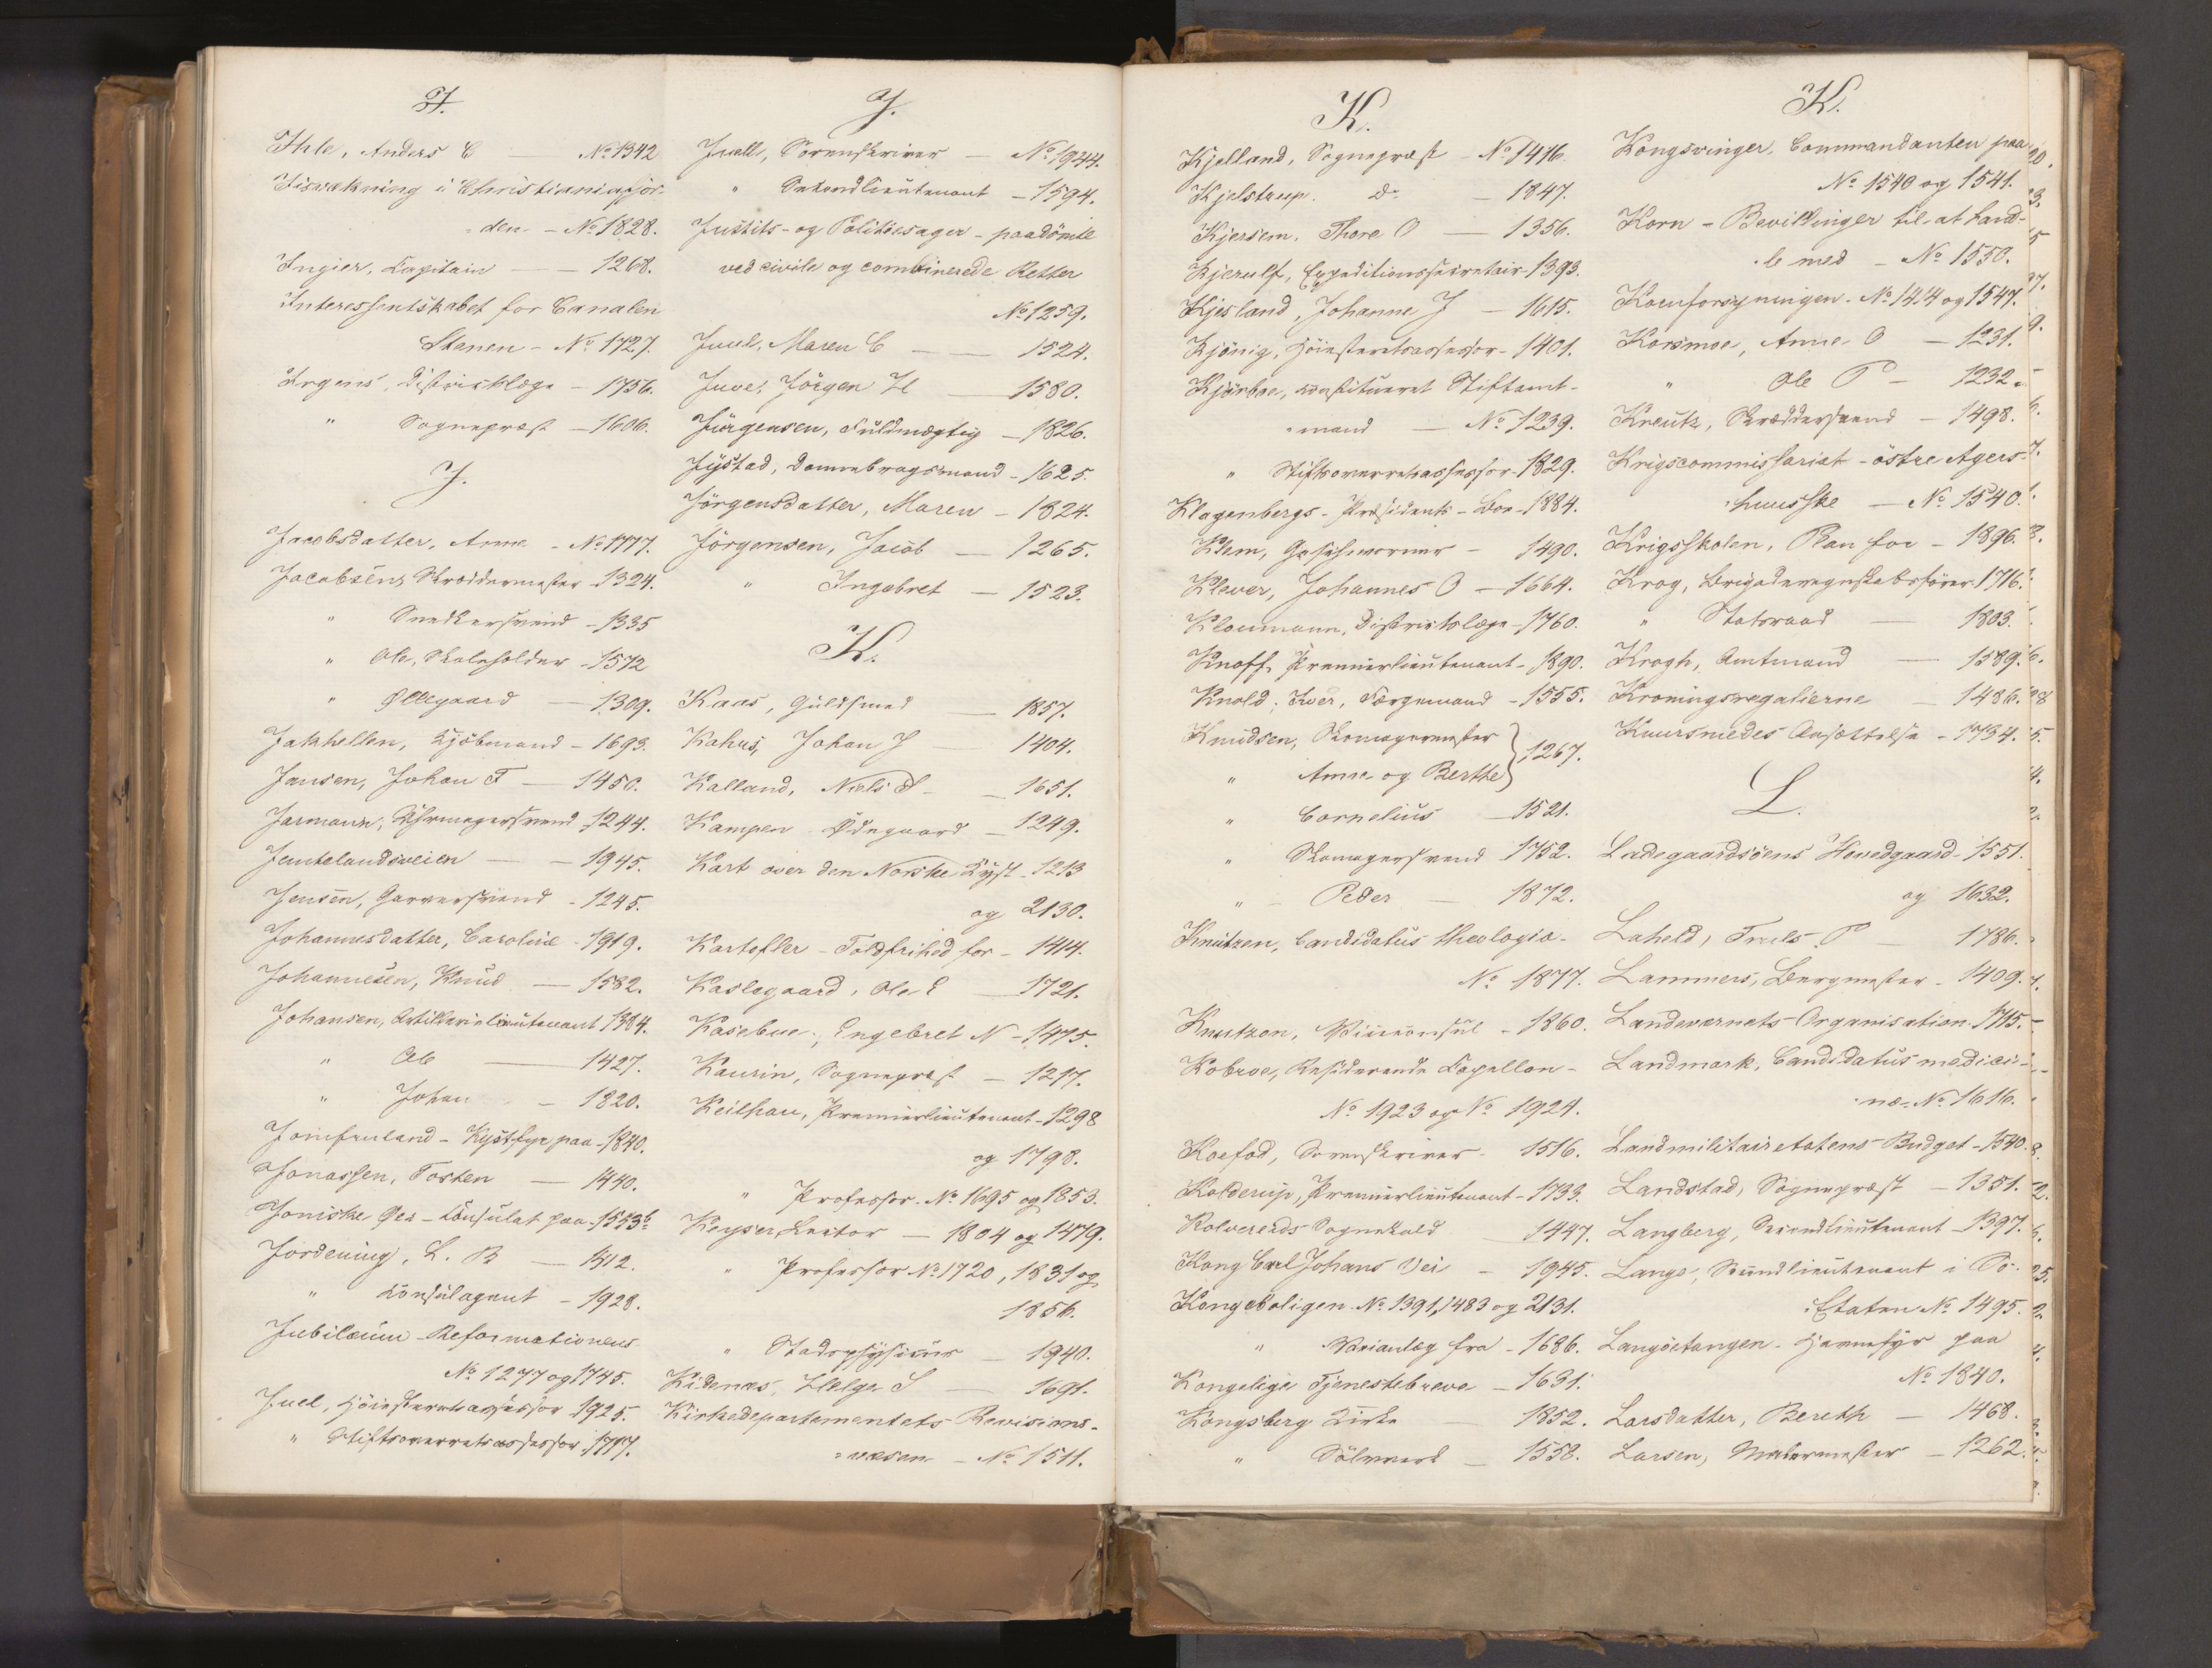 I.
Ihle, Anders C — No 1342
Iisvækning i Christianiafjor-
den - No 1828.
Ingier, Capitain — 1268.
Interessentskabet for Canalen
Stenen - No 1727.
Irgens, Districtslæge - 1756.
" Sognepræst - 1606.
J.
Jacobsdatter, Anne - No 1717.
Jacobsen, Skræddermester - 1324.
" Snedkersvend - 1335
" Ole, Skoleholder - 1572
" Øllegaard — 1309.
Jakhellen, Kjöbmand - 1693.
Jansen, Johan F — 1450.
Jarmann, Uhrmagersvend 1244.
Jemtelandsveien — 1945.
Jensen, Garversvend - 1245.
Johannesdatter, Caroline - 1919.
Johannesen, Knud — 1582.
Johansen, Artillerielieutenant 1384.
" Ole — 1427.
" Johan — 1820.
Jomfruland - Kystfyr paa - 1840.
Jonassen, Tosten — 1440.
Joniske Øer - Consulat paa - 1553b
Jordening, L. B — 1312.
" Consulagent - 1928.
Jubilæum - Reformationens
No 1277 og 1745.
Juel, Höiesteretsassessor 1925.
" Stiftsoverretsassessor 1717.
J.
Juell, Sorenskriver — No 1944.
" Secondlieutenant - 1594.
Justits- og Politiesager - paadömte
ved civile og combinerede Retter
No 1259.
Juul, Maren C — 1524.
Juve, Jörgen H — 1580.
Jürgensen, Fuldmægtig - 1826.
Jystad, Dannebrogsmand - 1625.
Jörgensdatter, Maren - 1324.
Jörgensen, Jacob — 1265.
" Ingebret — 1523.
K.
Kaas, Guldsmed — 1857.
Kahrs, Johan J — 1404.
Kalland, Niels S — 1651.
Kampen Ödegaard - 1249.
Kart over den Norske Kyst - 1213
og 2130.
Kartofler - Toldfrihed for - 1414.
Kaslegaard, Ole E — 1721.
Kasebue, Engebret N - 1475.
Kaurin, Sognepræst - 1217.
Keilhau, Premierlieutenant - 1298
og 1798.
" Professor - No 1695 og 1853.
Keyser, Lector — 1804 og 1479.
" Professor No 1720, 1831 og
1856.
" Stadsphysicus — 1940.
Kidenæs, Helge S — 1691.
Kirkedepartementets Revisions-
væsen - No 1511.
K.
Kjelland, Sognepræst - No 1476.
Kjelstrup. do - 1847.
Kjersem, Thore O — 1356.
Kjerulf, Expeditionssecretair 1393.
Kjesland, Johanne J - 1615.
Kjönig, Höiesteretsassessor - 1401.
Kjörboe, constitueret Stiftamt-
mand — No 1239.
" Stiftsoverretsassessor - 1829.
Klagenbergs - Præsidents - Boe - 1884.
Klem, Geschworner - 1490.
Klever, Johannes O - 1664.
Kloumann, Districtslæge - 1760.
Knoff, Premierlieutenant - 1890.
Knold, Iver, Færgemand - 1555.
Knudsen, Skomagermester
" Anne og Berthe } 1267.
" Cornelius — 1521.
" Skomagersvend 1752.
" Peder — 1872.
Knutzen, Candidatus theologiæ -
No 1877.
Knutzon, Viceconsul - 1860.
Kobroe, Residerende Capellan -
No 1923 og No 1924.
Koefod, Sorenskriver - 1516.
Kolderup, Premierlieutenant - 1733.
Kolvereids Sognekald 1447.
Kong Carl Johans Vei - 1945.
Kongeboligen. No 1391, 1483 og 2131.
" Veianlæg fra - 1686.
Kongelige Tjenestebreve - 1631.
Kongsberg Kirke — 1852.
" Sölvværk — 1558.
K.
Kongsvinger, Commandanten paa
No 1540 og 1541.
Korn - Bevillinger til at hand-
le med - No 1550.
Kornforsyningen - No 1414 og 1547.
Korsmoe, Anne O — 1231.
" Ole P — 1232.
Kreutz, Skræddersvend - 1498.
Krigscommissariat - östre Agers-
huusske — No 1540.
Krigsskolen, Plan for - 1896.
Krog, Brigaderegnskabsförer 1716.
" Statsraad — 1803.
Krogh, Amtmand — 1589.
Kroningsregalierne — 1486.
Kuursmedes Ansættelse - 1734.
L.
Ladegaardsöens Hovedgaard - 1551.
og 1632.
Laheld, Truls P — 1786.
Lammers, Bergmester - 1409.
Landeværnets Organisation 1715.
Landmark, Candidatus medici-
næ - No 1616.
Landmilitairetatens Budget - 1540.
Landstad, Sognepræst - 1351.
Langberg, Secondlieutenant - 1397.
Lange, Secondlieutenant i Sö-
Etaten No 1495.
Langöetangen - Havnefyr paa
No 1840.
Larsdatter, Berethe — 1468.
Larsen, Malermester — 1262.